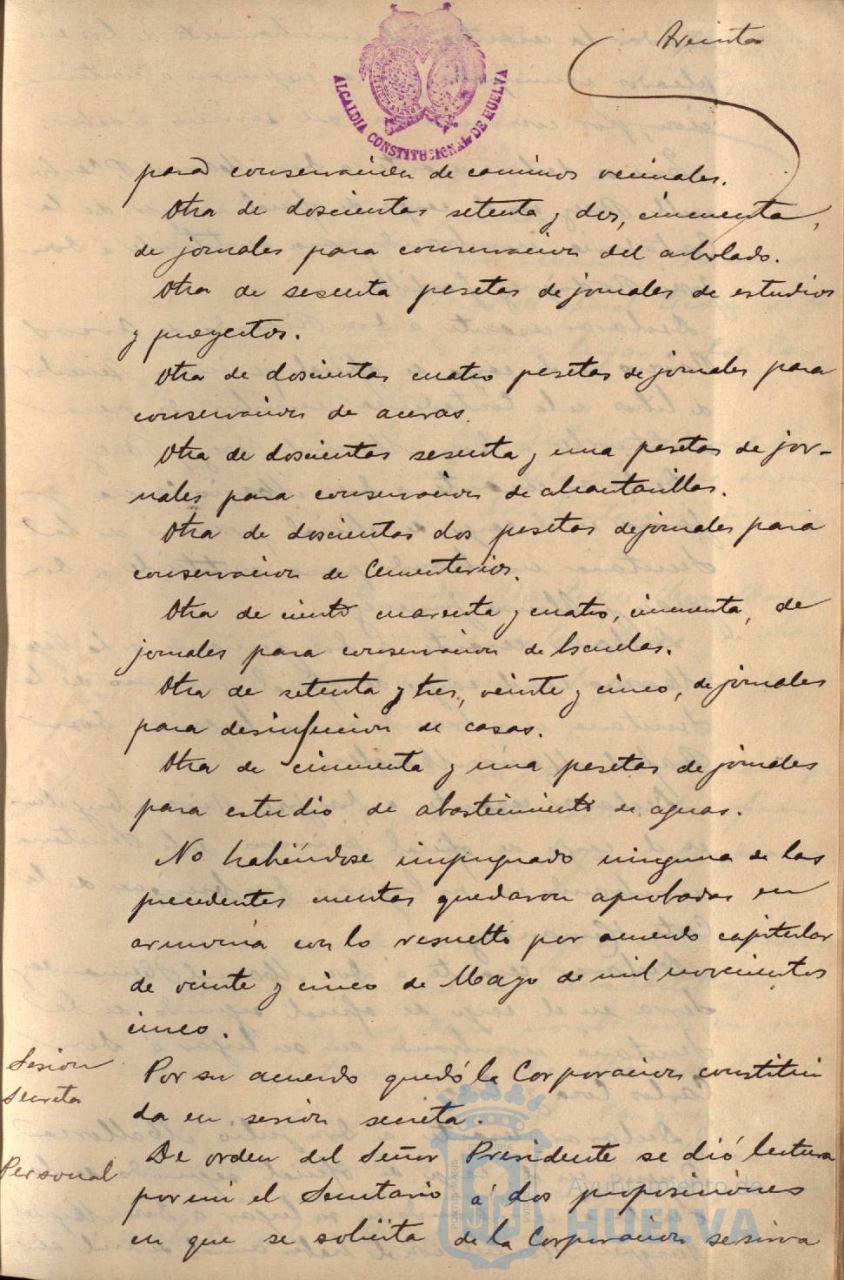 Treinta
ALCALDIA CONSTITUCIONAL DE HUELVA
para conservación de caminos vecinales.
Otra de doscientas setenta y dos, cincuenta,
de jornales para conservacion del arbolado.
Otra de sesenta pesetas de jornales de estudios
y proyectos.
Otra de doscientas cuatro pesetas de jornales para
conservacion de aceras.
Otra de doscientas sesenta y una pesetas de jor-
nales para conservacion de alcantarillas.
Otra de doscientas dos pesetas de jornales para
conservacion de Cementerios.
Otra de ciento cuarenta y cuatro, cincuenta, de
jornales para conservacion de Escuelas.
Otra de setenta y tres, veinte y cinco, de jornales
para desinfeccion de casas.
Otra de cincuenta y una pesetas de jornales
para estudio de abastecimiento de aguas.
No habiéndose impugnado ninguna de las
precedentes cuentas quedaron aprobadas en
armonía con lo resuelto por acuerdo capitular
de veinte y cinco de Mayo de mil novecientos
cinco.
Sesion
Secreta
Por su acuerdo quedó la Corporacion constitui
da en sesión secreta.
Personal
De orden del Señor Presidente se dió lectura
por mi el Secretario á dos proposiciones
en que se solicita de la Corporacion se sirva
Ayuntamiento de
HUELVA